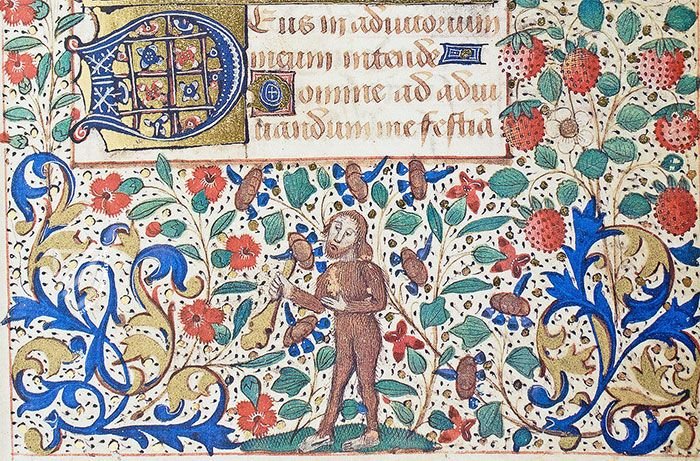 Deus in adiutorium
meum intende
Domine ad adiu
uandum me festi a